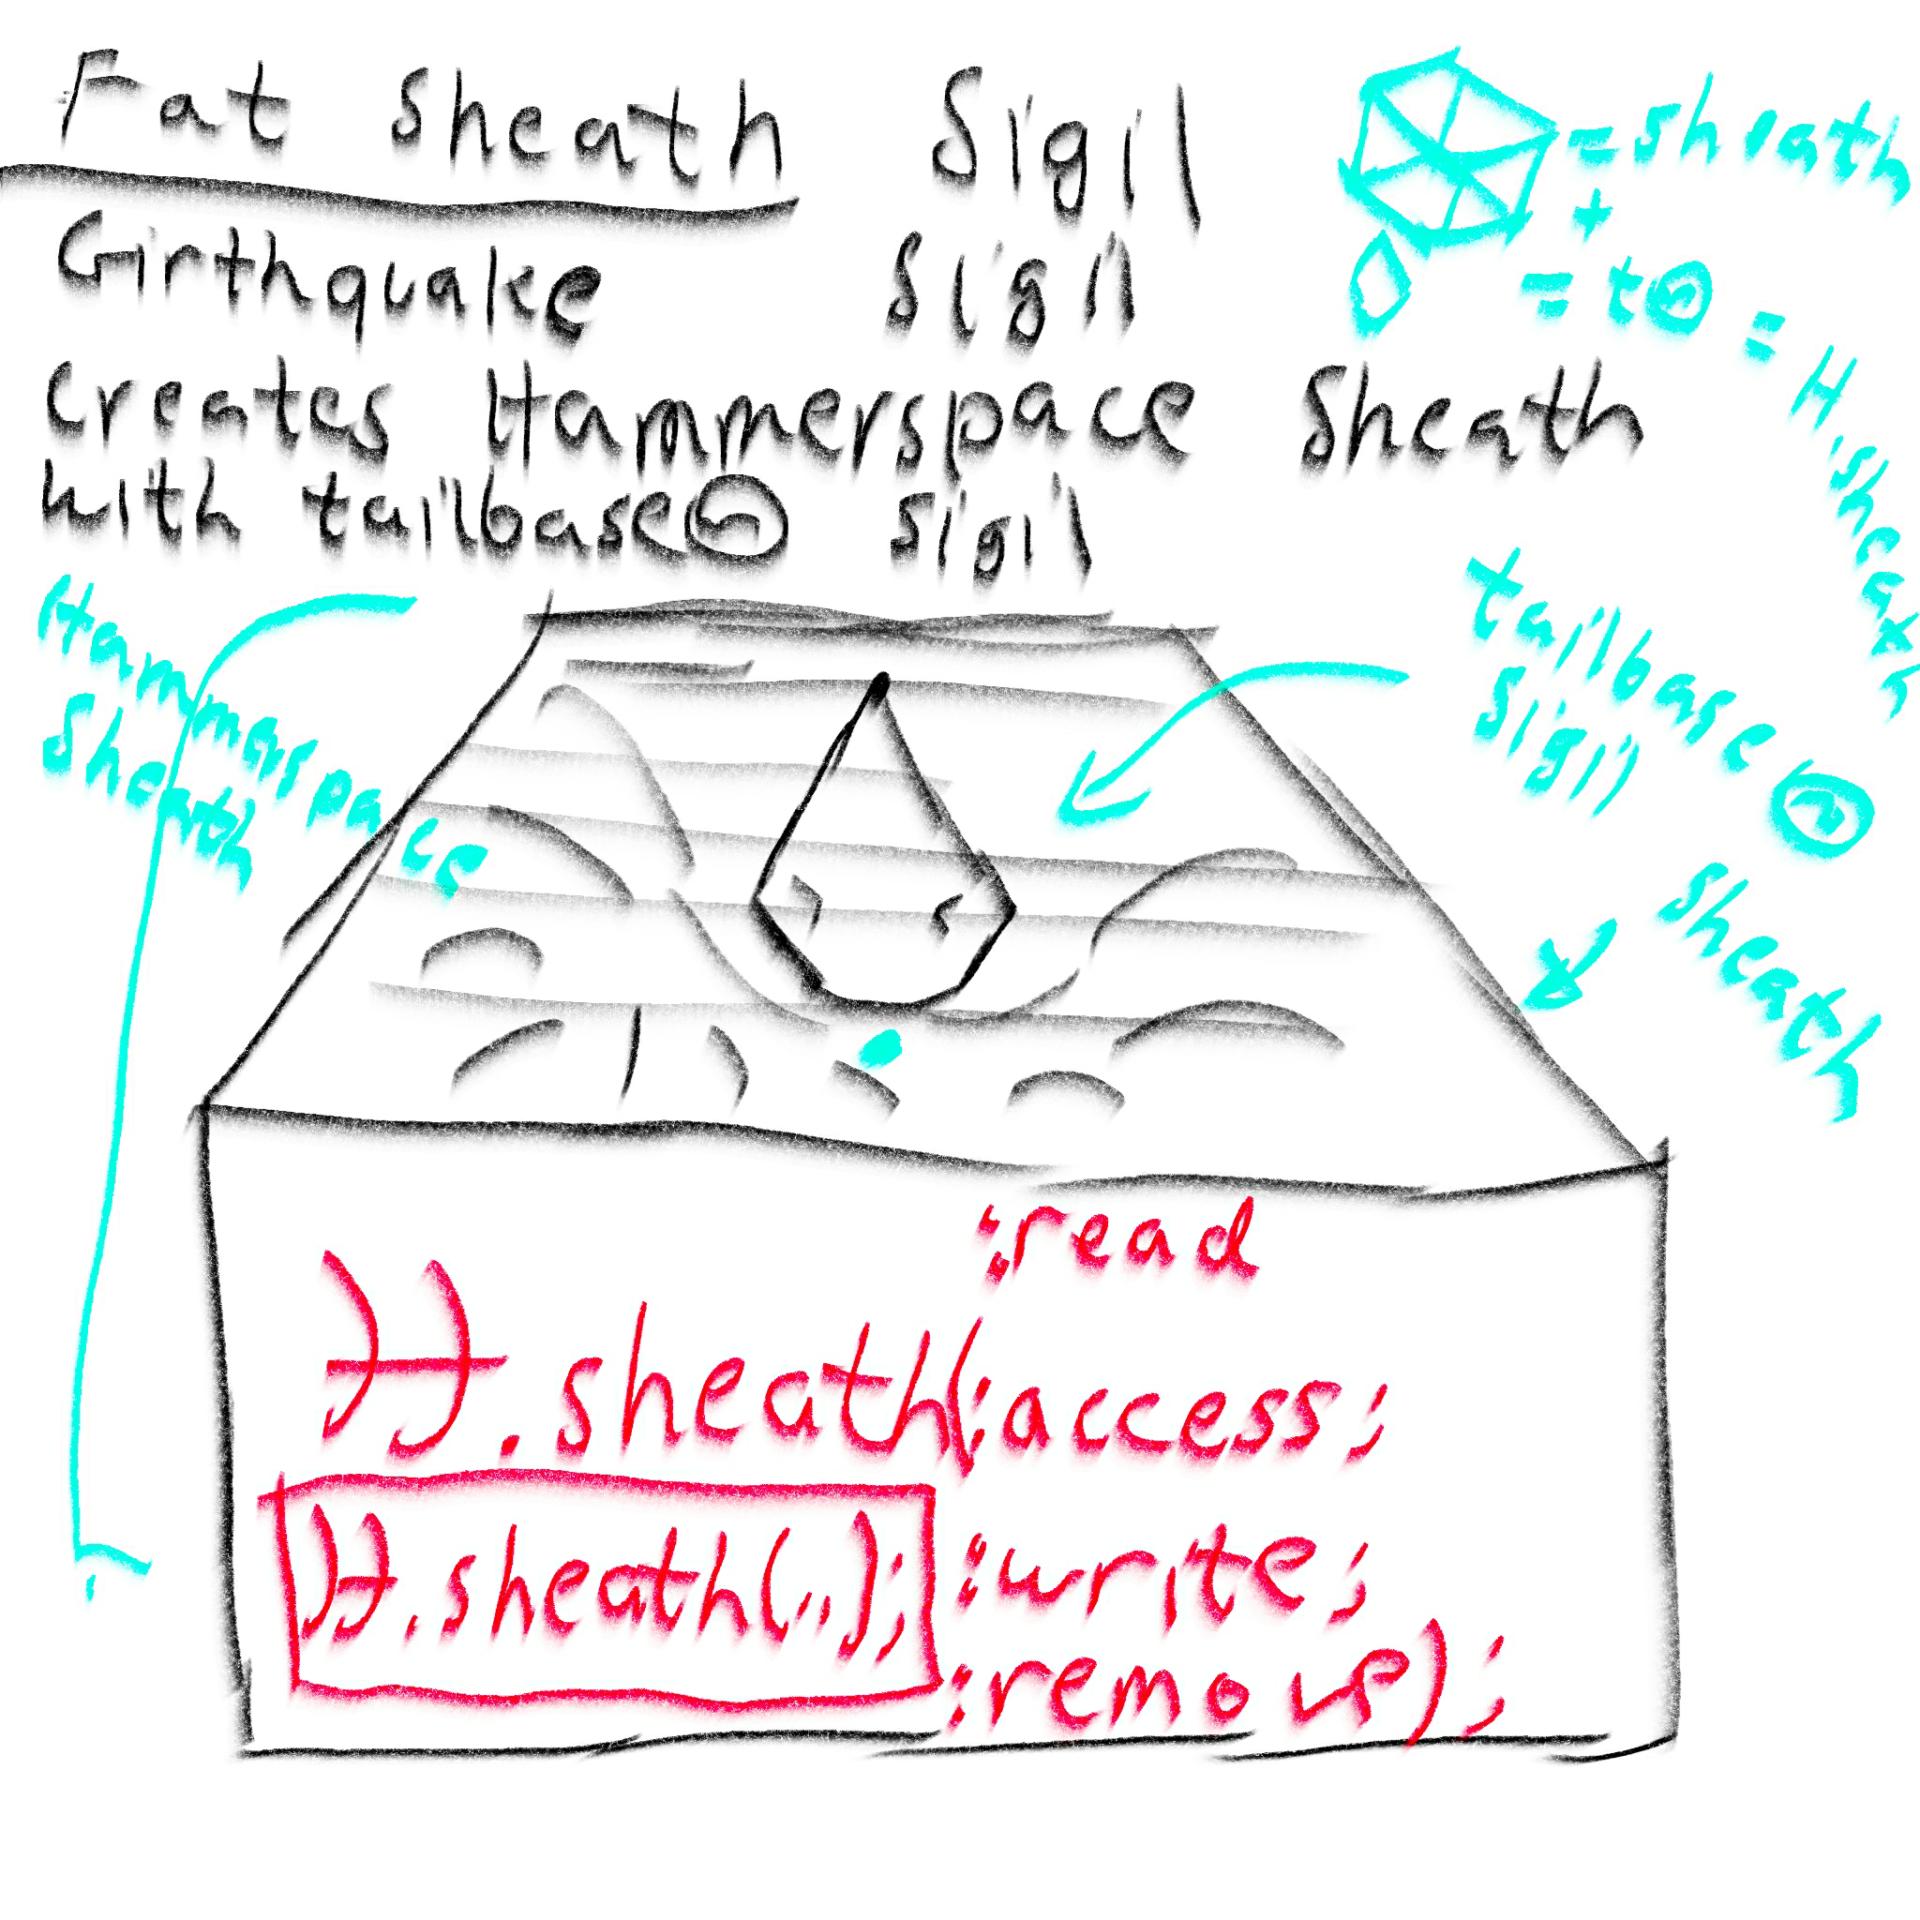 Fat Sheath Sigil
Girthquake Sigil
Creates Hammerspace Sheath
with tailbase Sigil
= sheath
+
= t = H.sheath
Hammerspace
Sheath
tailbase
Sigil
Sheath
:read
H.sheath(:access;
H.sheath(..); :write;
:remove);